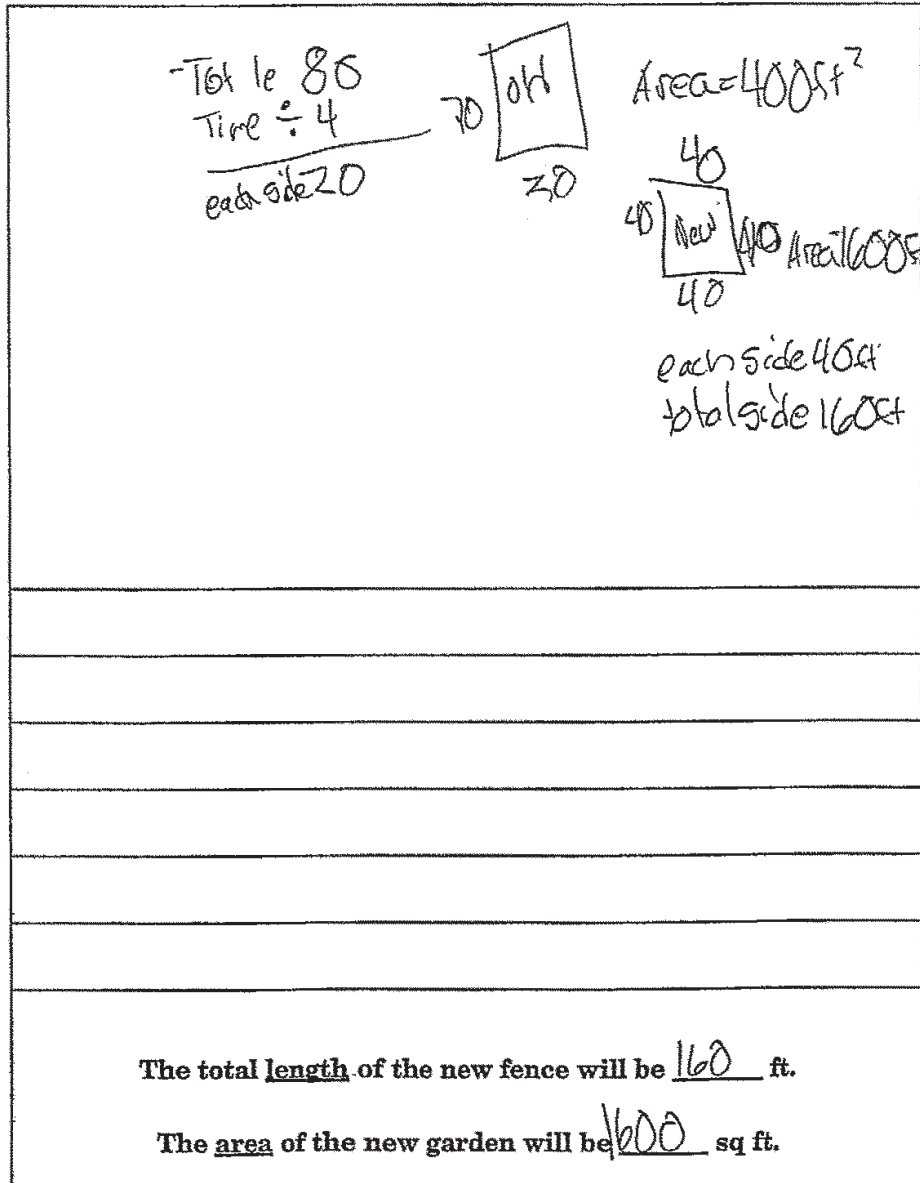 -Tot le 80
Time ÷ 4
each side 20
20
old
20
Area=400ft²
40
40
New
40
Area=1600f
40
each side 40ft
total side 160ft
The total length of the new fence will be 160 ft.
The area of the new garden will be 1600 sq ft.